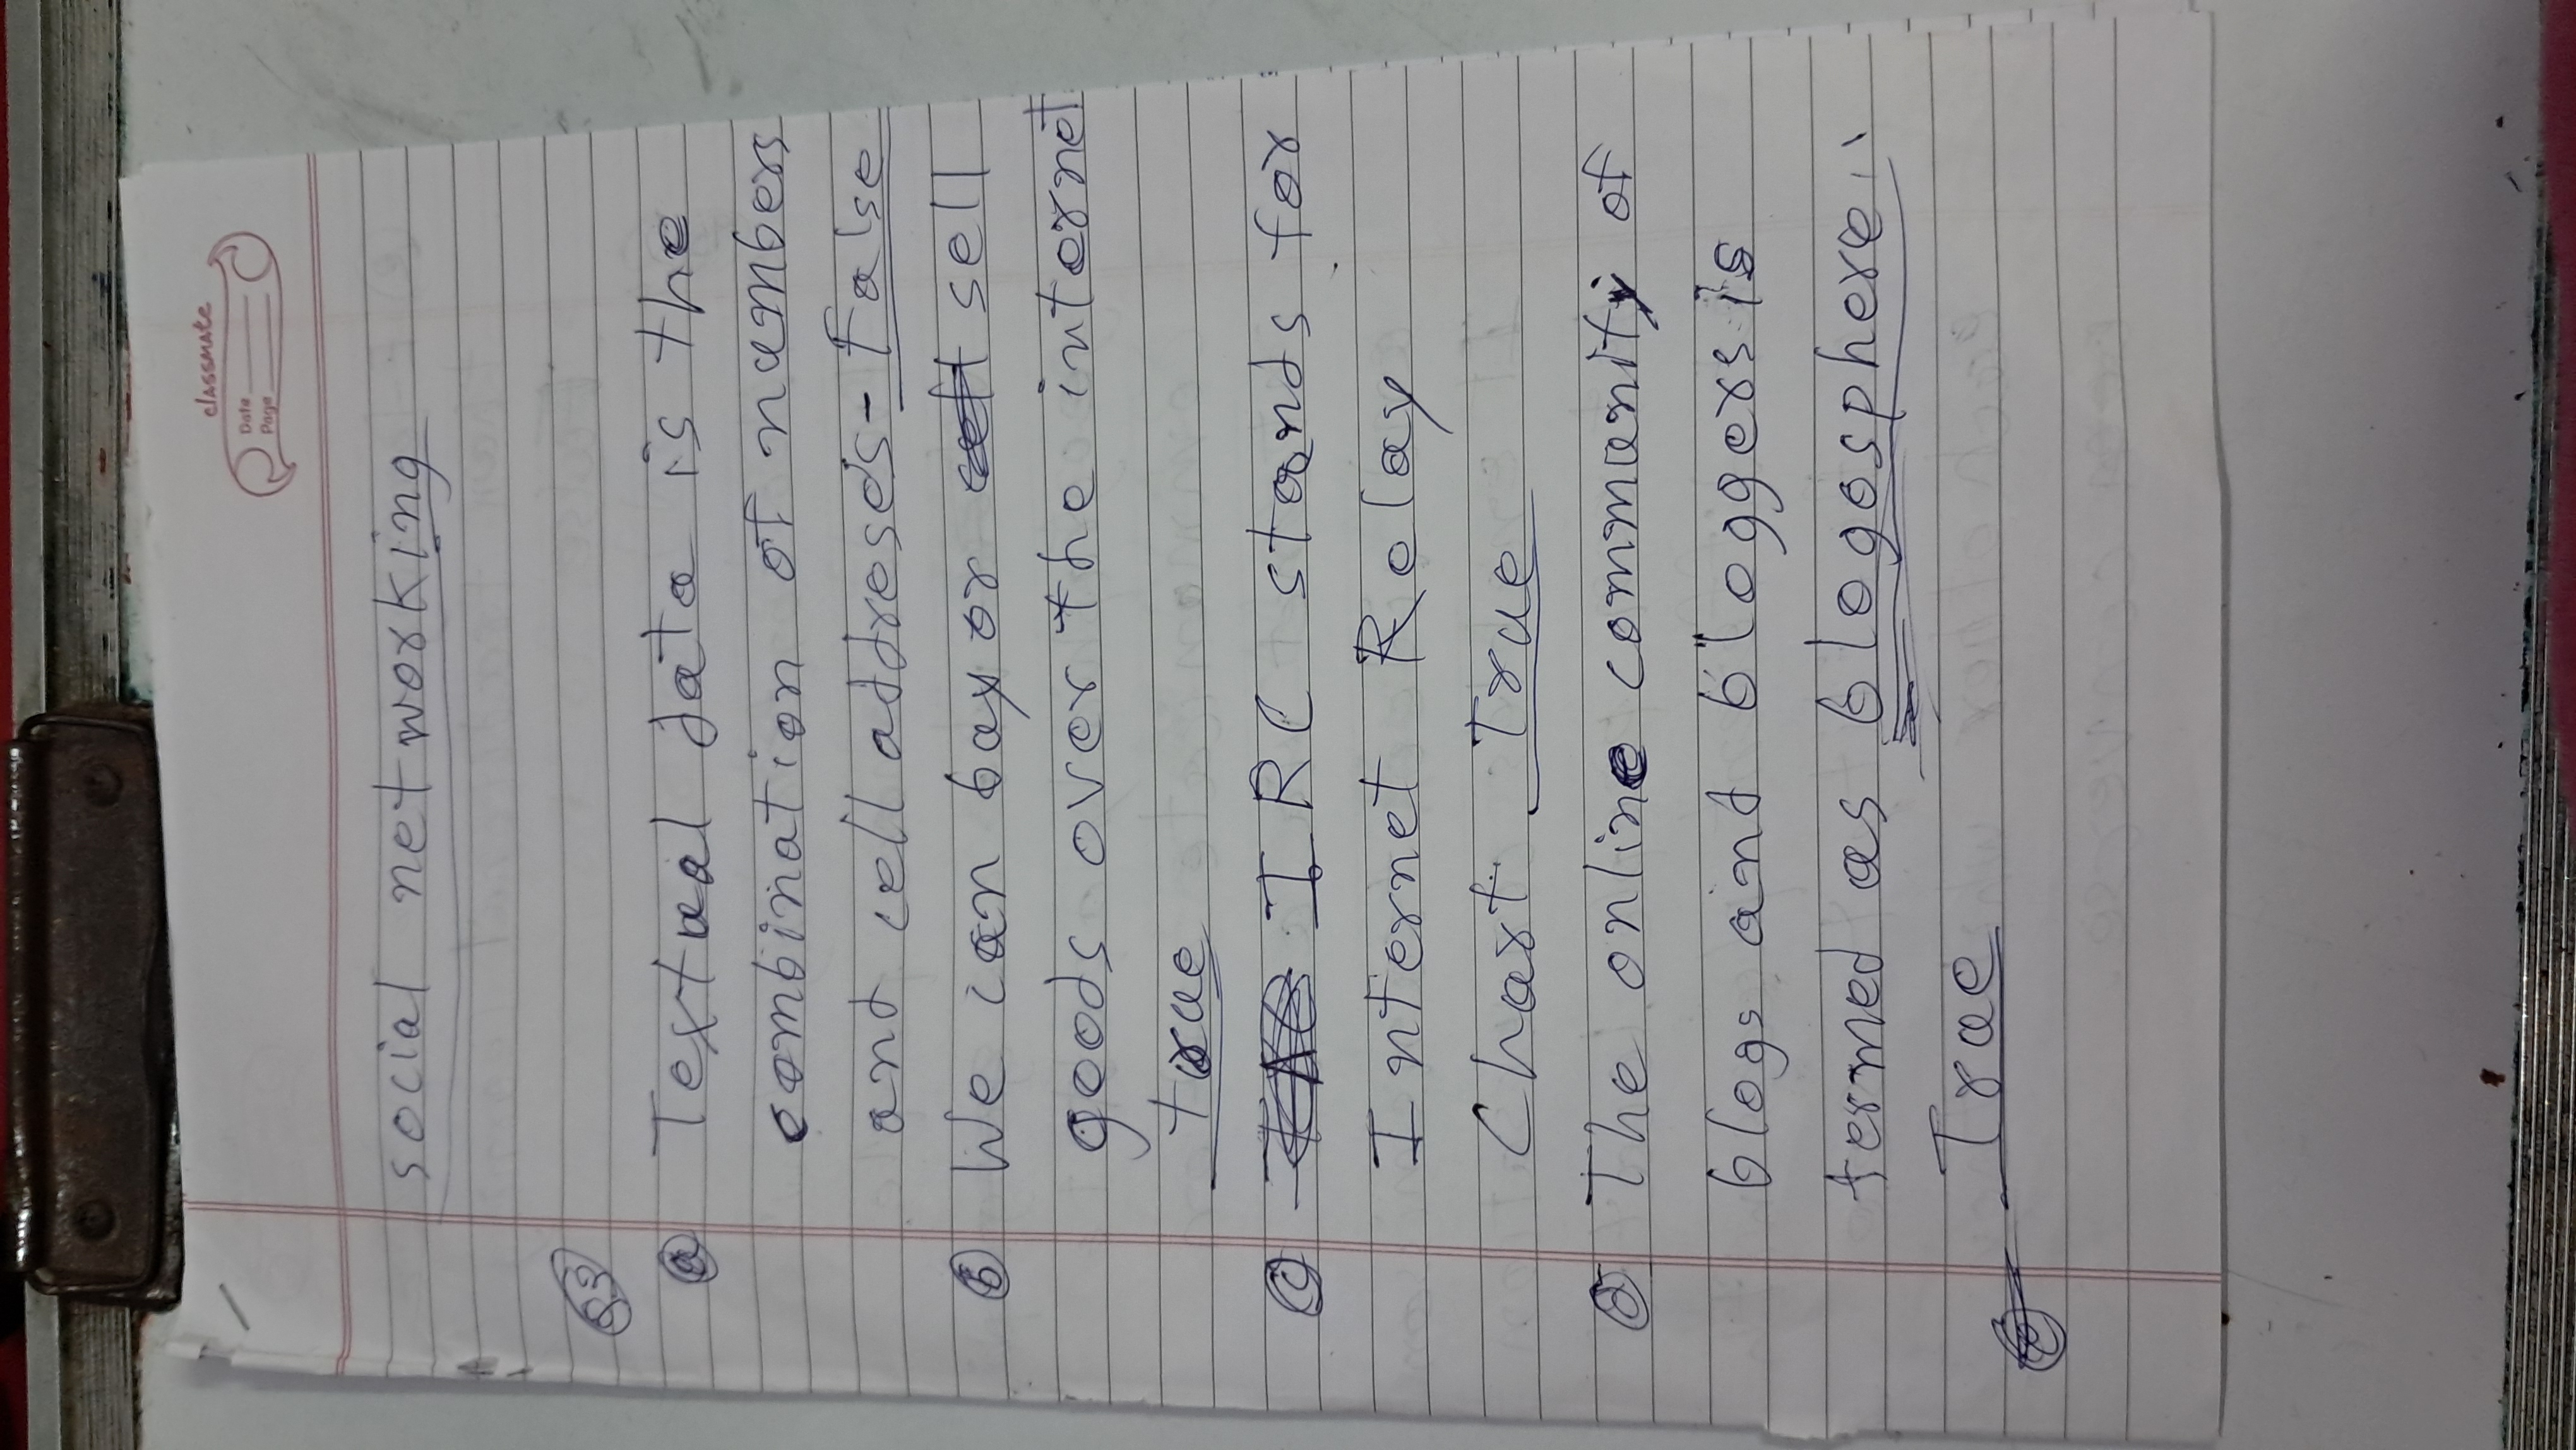 classmate
Date
Page
social networking
Q3
a Textual data is the
combination of numbers
and cell addreses - false
b We can bay or sell
goods over the internet
true
c IRC stands for
Internet Relay
Chart True
d The online community of
blogs and bloggers is
termed as blogosphere.
True
e